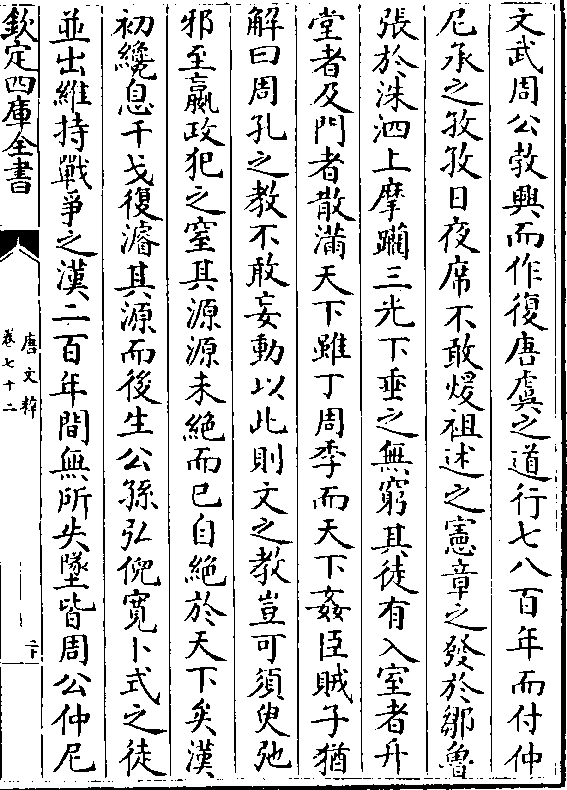 文武周公敎興而作復唐虞之道行七八百年而付仲
尼承之孜孜日夜席不敢煖祖述之憲章之發於鄒魯
張於洙泗上摩躪三光下垂之無窮其徒有入室者升
堂者及門者散滿天下雖丁周季而天下姦臣賊子猶
解曰周孔之教不敢妄動以此則文之教豈可須臾弛
邪至嬴政犯之窒其源源未絶而已自絶於天下矣漢
初纔息干戈復濬其源而後生公孫弘倪寛卜式之徒
並出維持戰爭之漢二百年間無所失墜皆周公仲尼
欽定四庫全書
唐文粹
卷七十二
二十